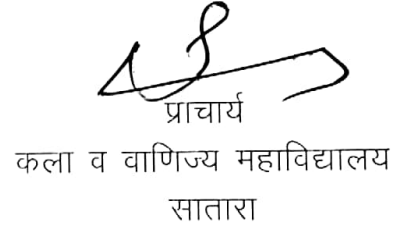 प्राचार्य
कला व वाणिज्य महाविद्यालय
सातारा